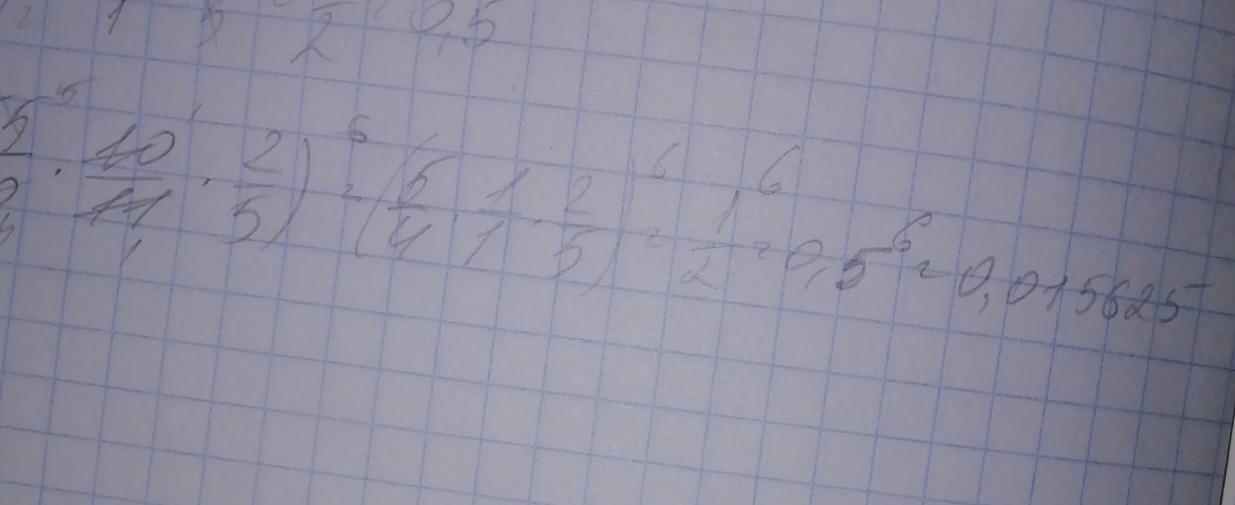 1 5 2 0,5
5/ · 10/11 · 2/5)^6 = (5/4 · 1/1 · 2/5)^6 = 1/2^6 = 0,5^6 = 0,015625